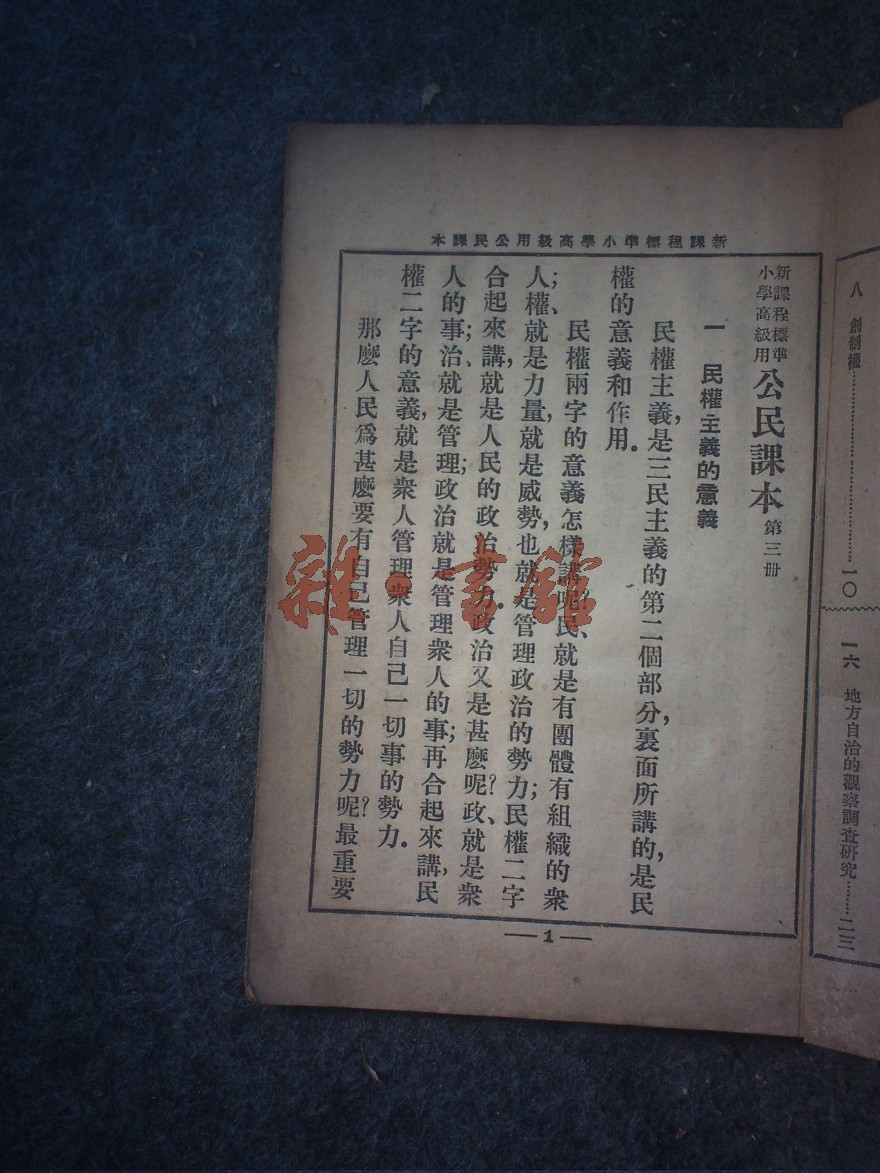 新課程標準小學高級用公民課本
新課程標準
小學高級用
公民課本 第三冊
一 民權主義的意義
民權主義,是三民主義的第二個部分,裏面所講的,是民
權的意義和作用.
民權兩字的意義怎樣講呢?民、就是有團體有組織的衆
人;權、就是力量,就是威勢,也就是管理政治的勢力;民權二字
合起來講,就是人民的政治勢力.政治又是甚麽呢?政、就是衆
人的事;治、就是管理;政治就是管理衆人的事;再合起來講,民
權二字的意義,就是衆人管理衆人自己一切事的勢力.
那麽人民爲甚麽要有自己管理一切的勢力呢?最重要
— 1 —
八 創制權……一〇
一六 地方自治的觀察調查研究……二三
雜·書館